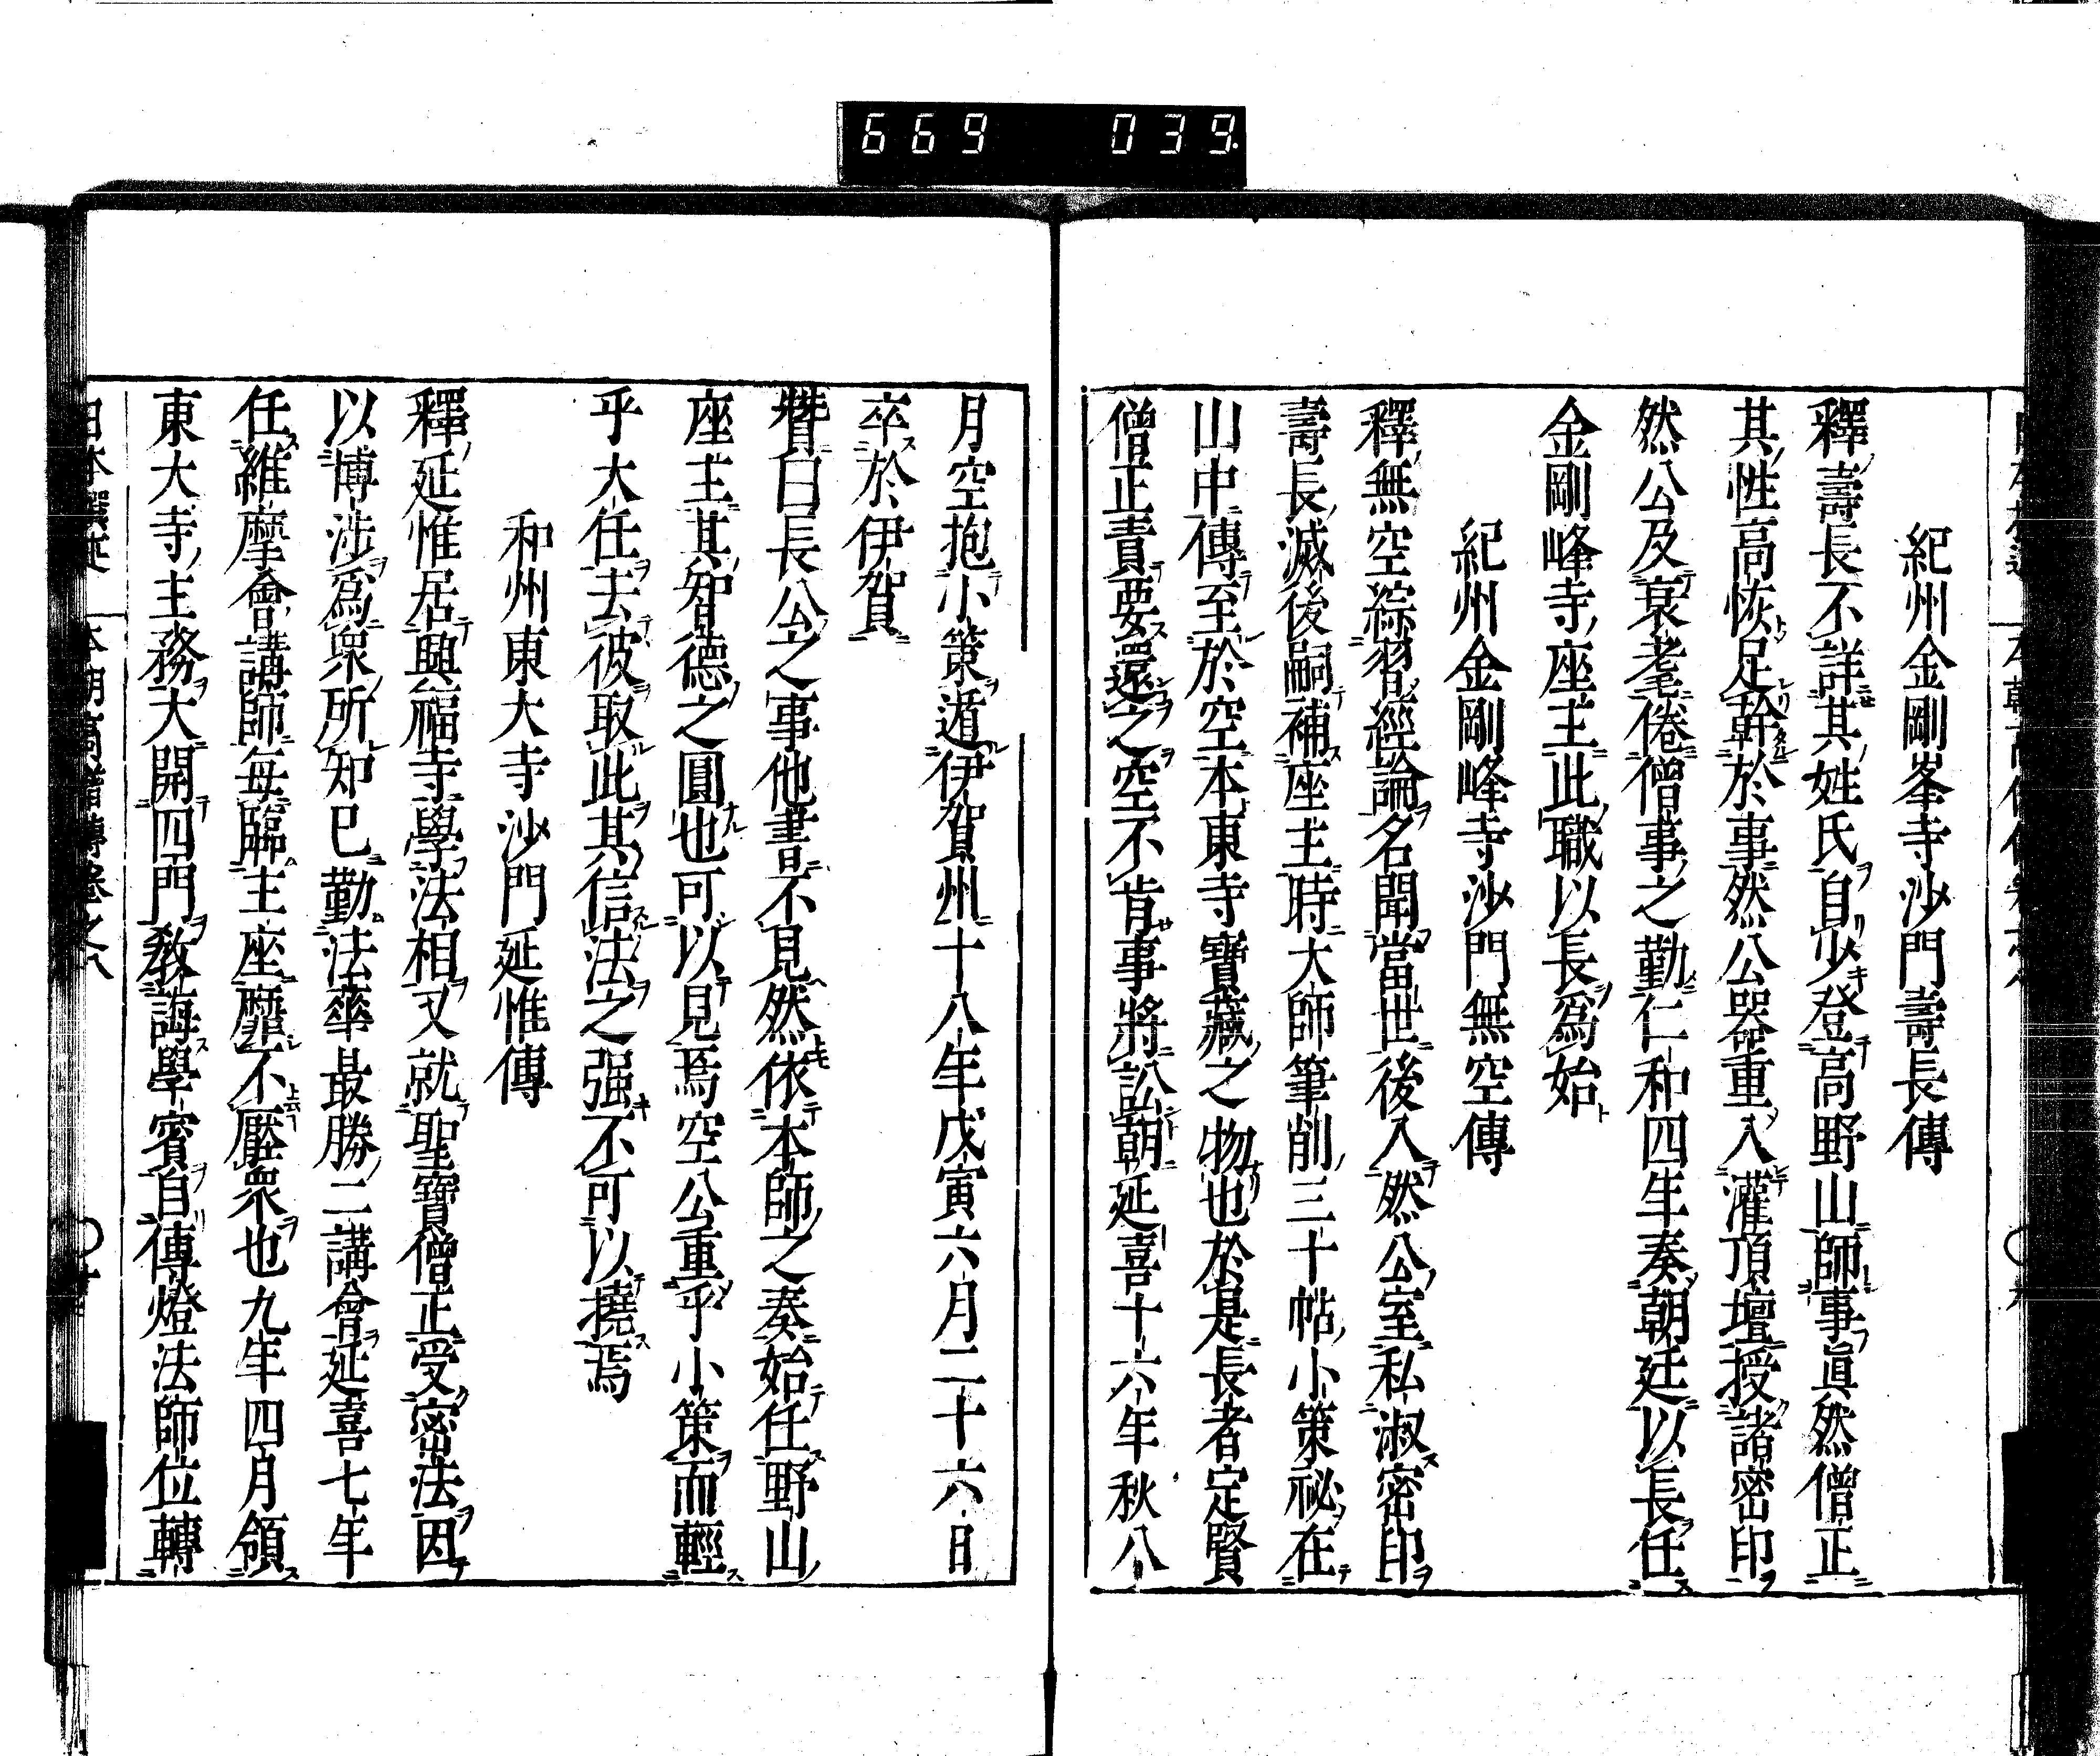 669 039
紀州金剛峯寺沙門壽長傳
釋壽長不詳其姓氏自少登高野山師事眞然僧正
其性高恢足幹於事然公器重入灌頂壇授諸密印
然公及衰耄倦僧事之勤仁和四年奏朝廷以長任
金剛峰寺座主此職以長爲始
紀州金剛峰寺沙門無空傳
釋無空綜習經論名聞當世後入然公室私淑密印
壽長滅後嗣補座主時大師筆削三十帖小策祕在
山中傳至於空本東寺寶藏之物也於是長者定賢
僧正責要還之空不肯事將訟朝延喜十六年秋八
月空抱小策遁伊賀州十八年戊寅六月二十六日
卒於伊賀
贊曰長公之事他書不見然依本師之奏始任野山
座主其智德之圓也可以見焉空公重乎小策而輕
乎大任去彼取此其信法之强不可以撓焉
和州東大寺沙門延惟傳
釋延惟居興福寺學法相又就聖寶僧正受密法因
以博涉爲衆所知已勤法華最勝二講會延喜七年
任維摩會講師每臨主座靡不壓衆也九年四月領
東大寺主務大開四門教誨學賓自傳燈法師位轉
本朝高僧傳卷之八